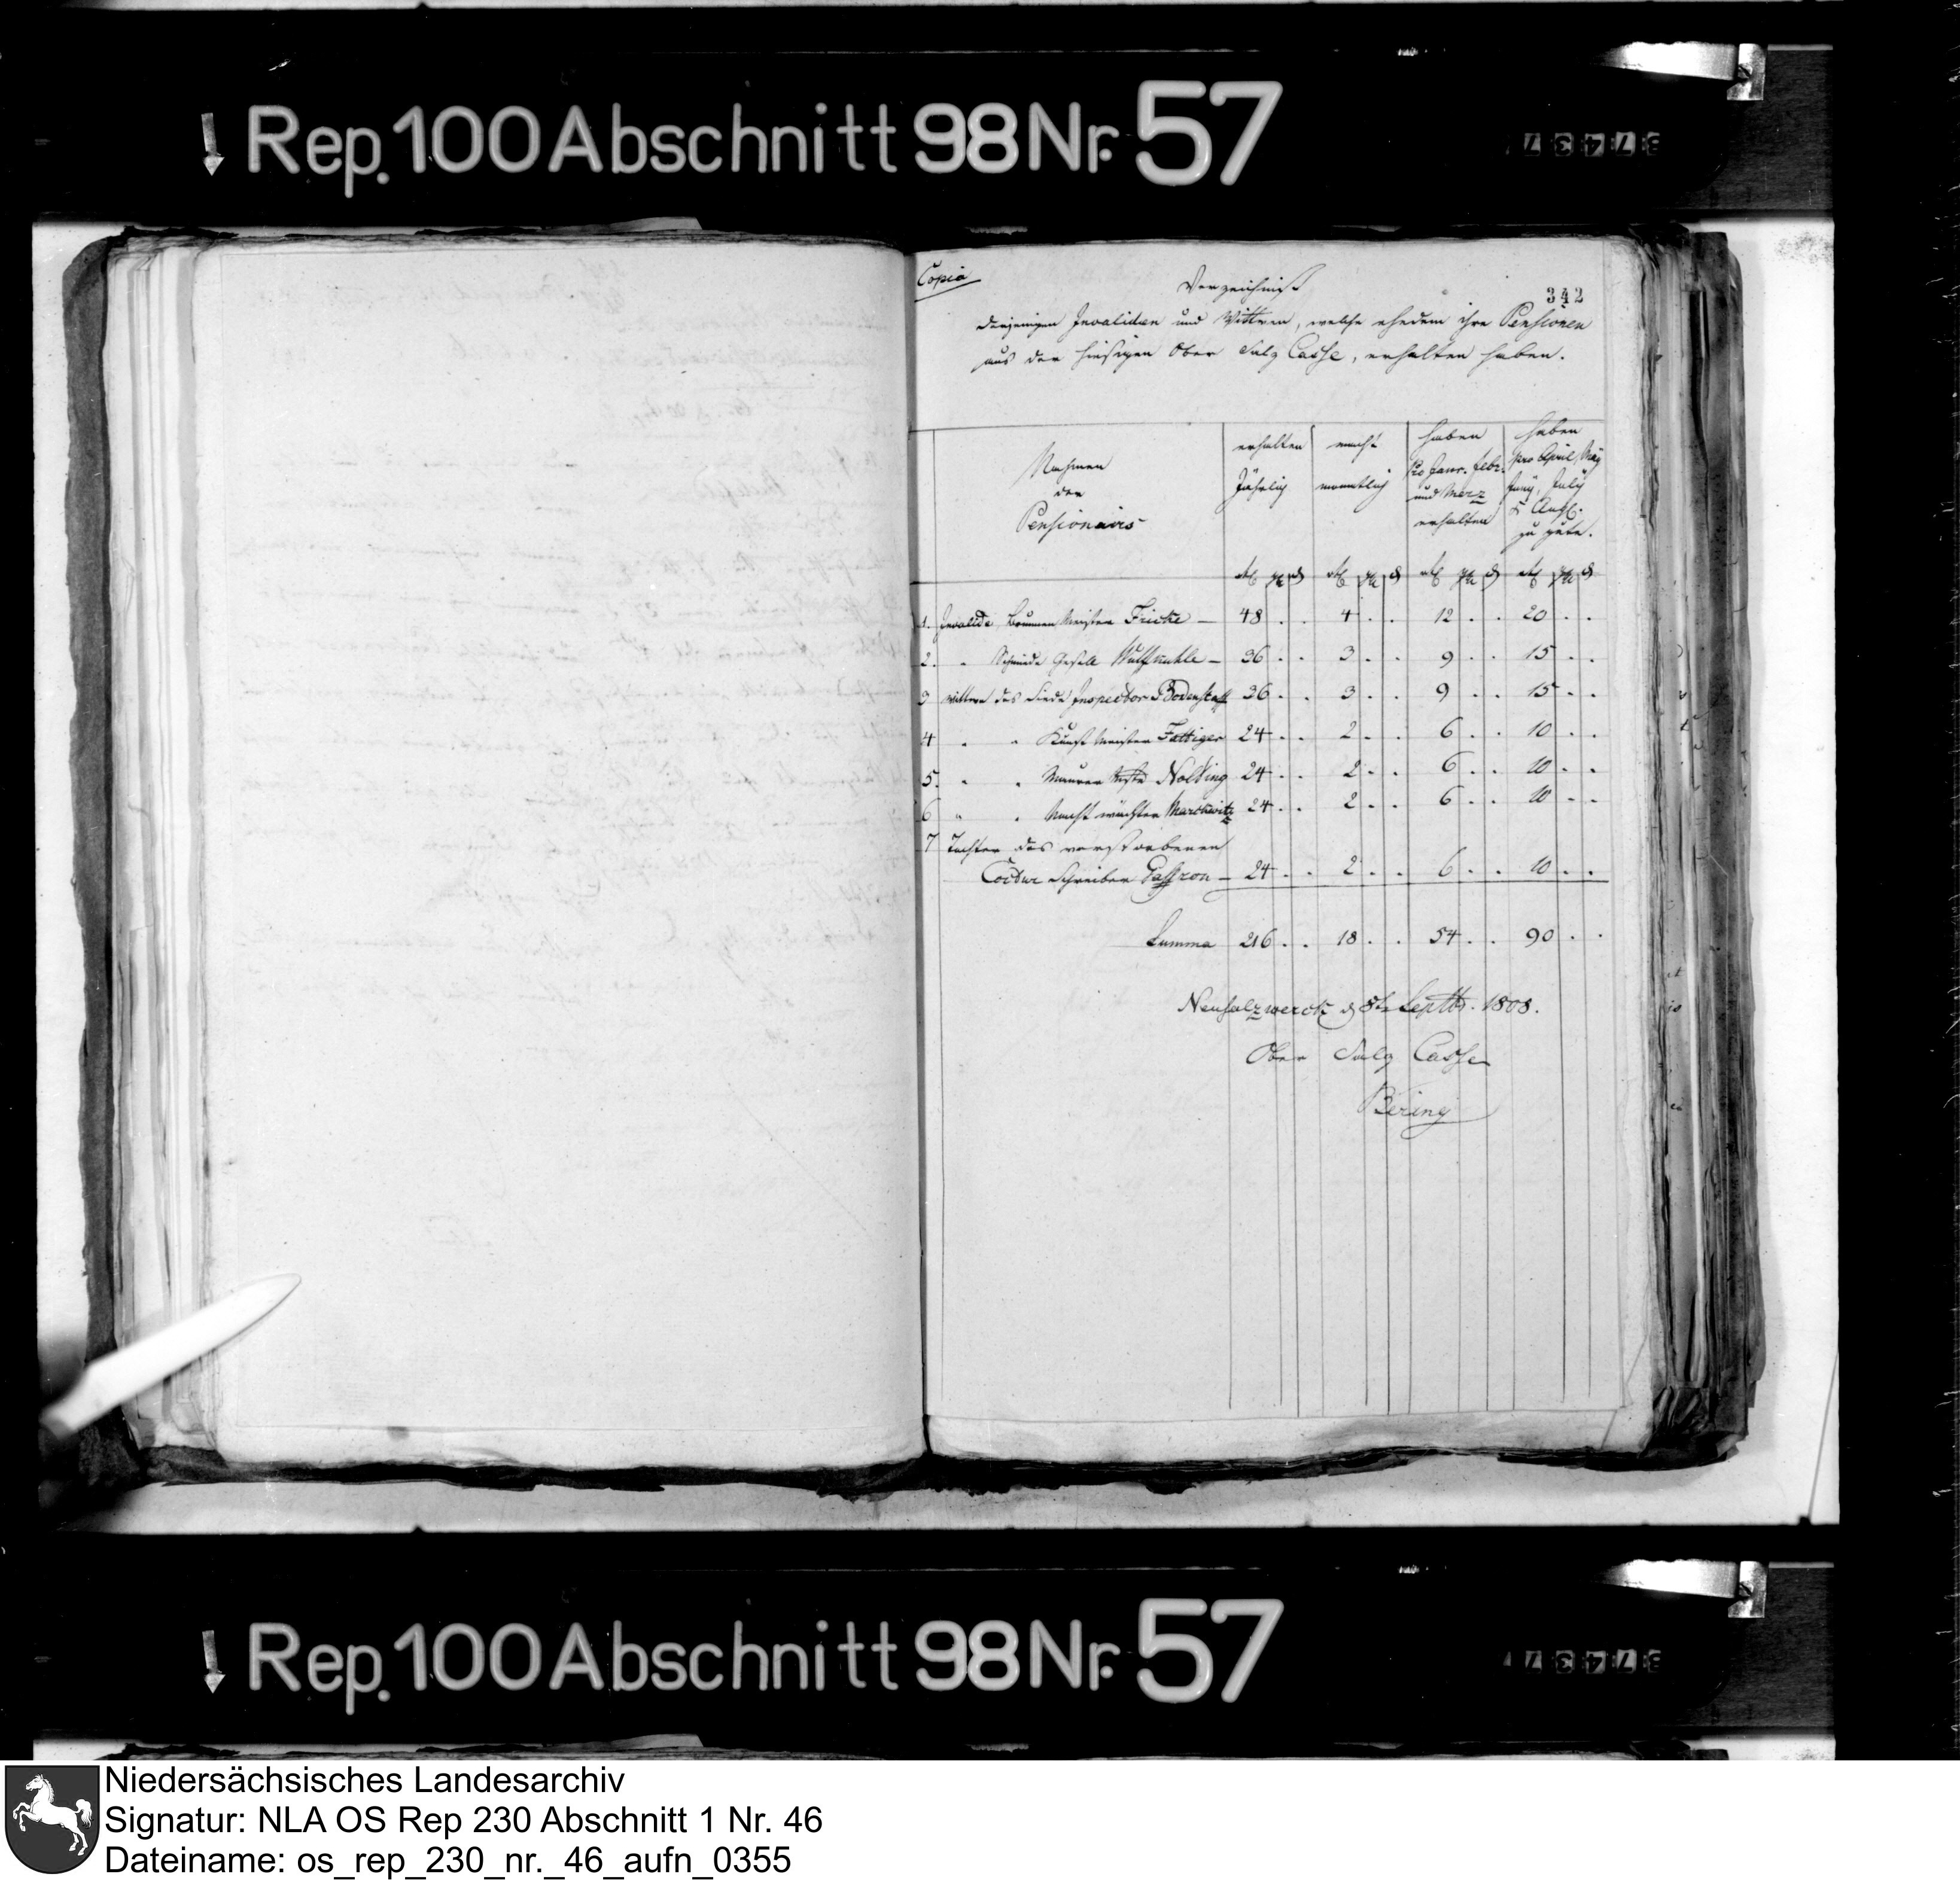 Rep. 100 Abschnitt 98 Nr. 57
Copia
342
Verzeichniß
derjenigen Invaliden und Wittwen, welche ehedem ihre Pensionen
aus der hiesigen Ober Salz Casse, erhalten haben.
Nahmen
der
Pensionairs
erhalten
Jährlich
macht
monatlich
haben
pro Janr. Febr.
und Merz
erhalten
haben
pro April, May
Juny, July
& Aug.
zu gute.
1. Invalide Brunnen Meister Fricke — 48 . . 4 . . 12 . . 20 . .
2. " Schmiede Gesell — 36 . . 3 . . 9 . . 15 . .
3 Wittwe des Siede Inspector Bodenstaff 36 . . 3 . . 9 . . 15 . .
4 " " Kunst Meister Fattiger 24 . . 2 . . 6 . . 10 . .
5. " " Maurer Nolting 24 . . 2 . . 6 . . 10 . .
6 " " Nacht wächter Marckwitz 24 . . 2 . . 6 . . 10 . .
7 Tochter des verstorbenen
Coctur Schreiber — 24 . . 2 . . 6 . . 10 . .
Summa 216 . . 18 . . 54 . . 90 . .
Neusalzwerck d 8t Septbr. 1808.
Ober Salz Casse
Bering
Rep. 100 Abschnitt 98 Nr. 57
Niedersächsisches Landesarchiv
Signatur: NLA OS Rep 230 Abschnitt 1 Nr. 46
Dateiname: os_rep_230_nr._46_aufn_0355